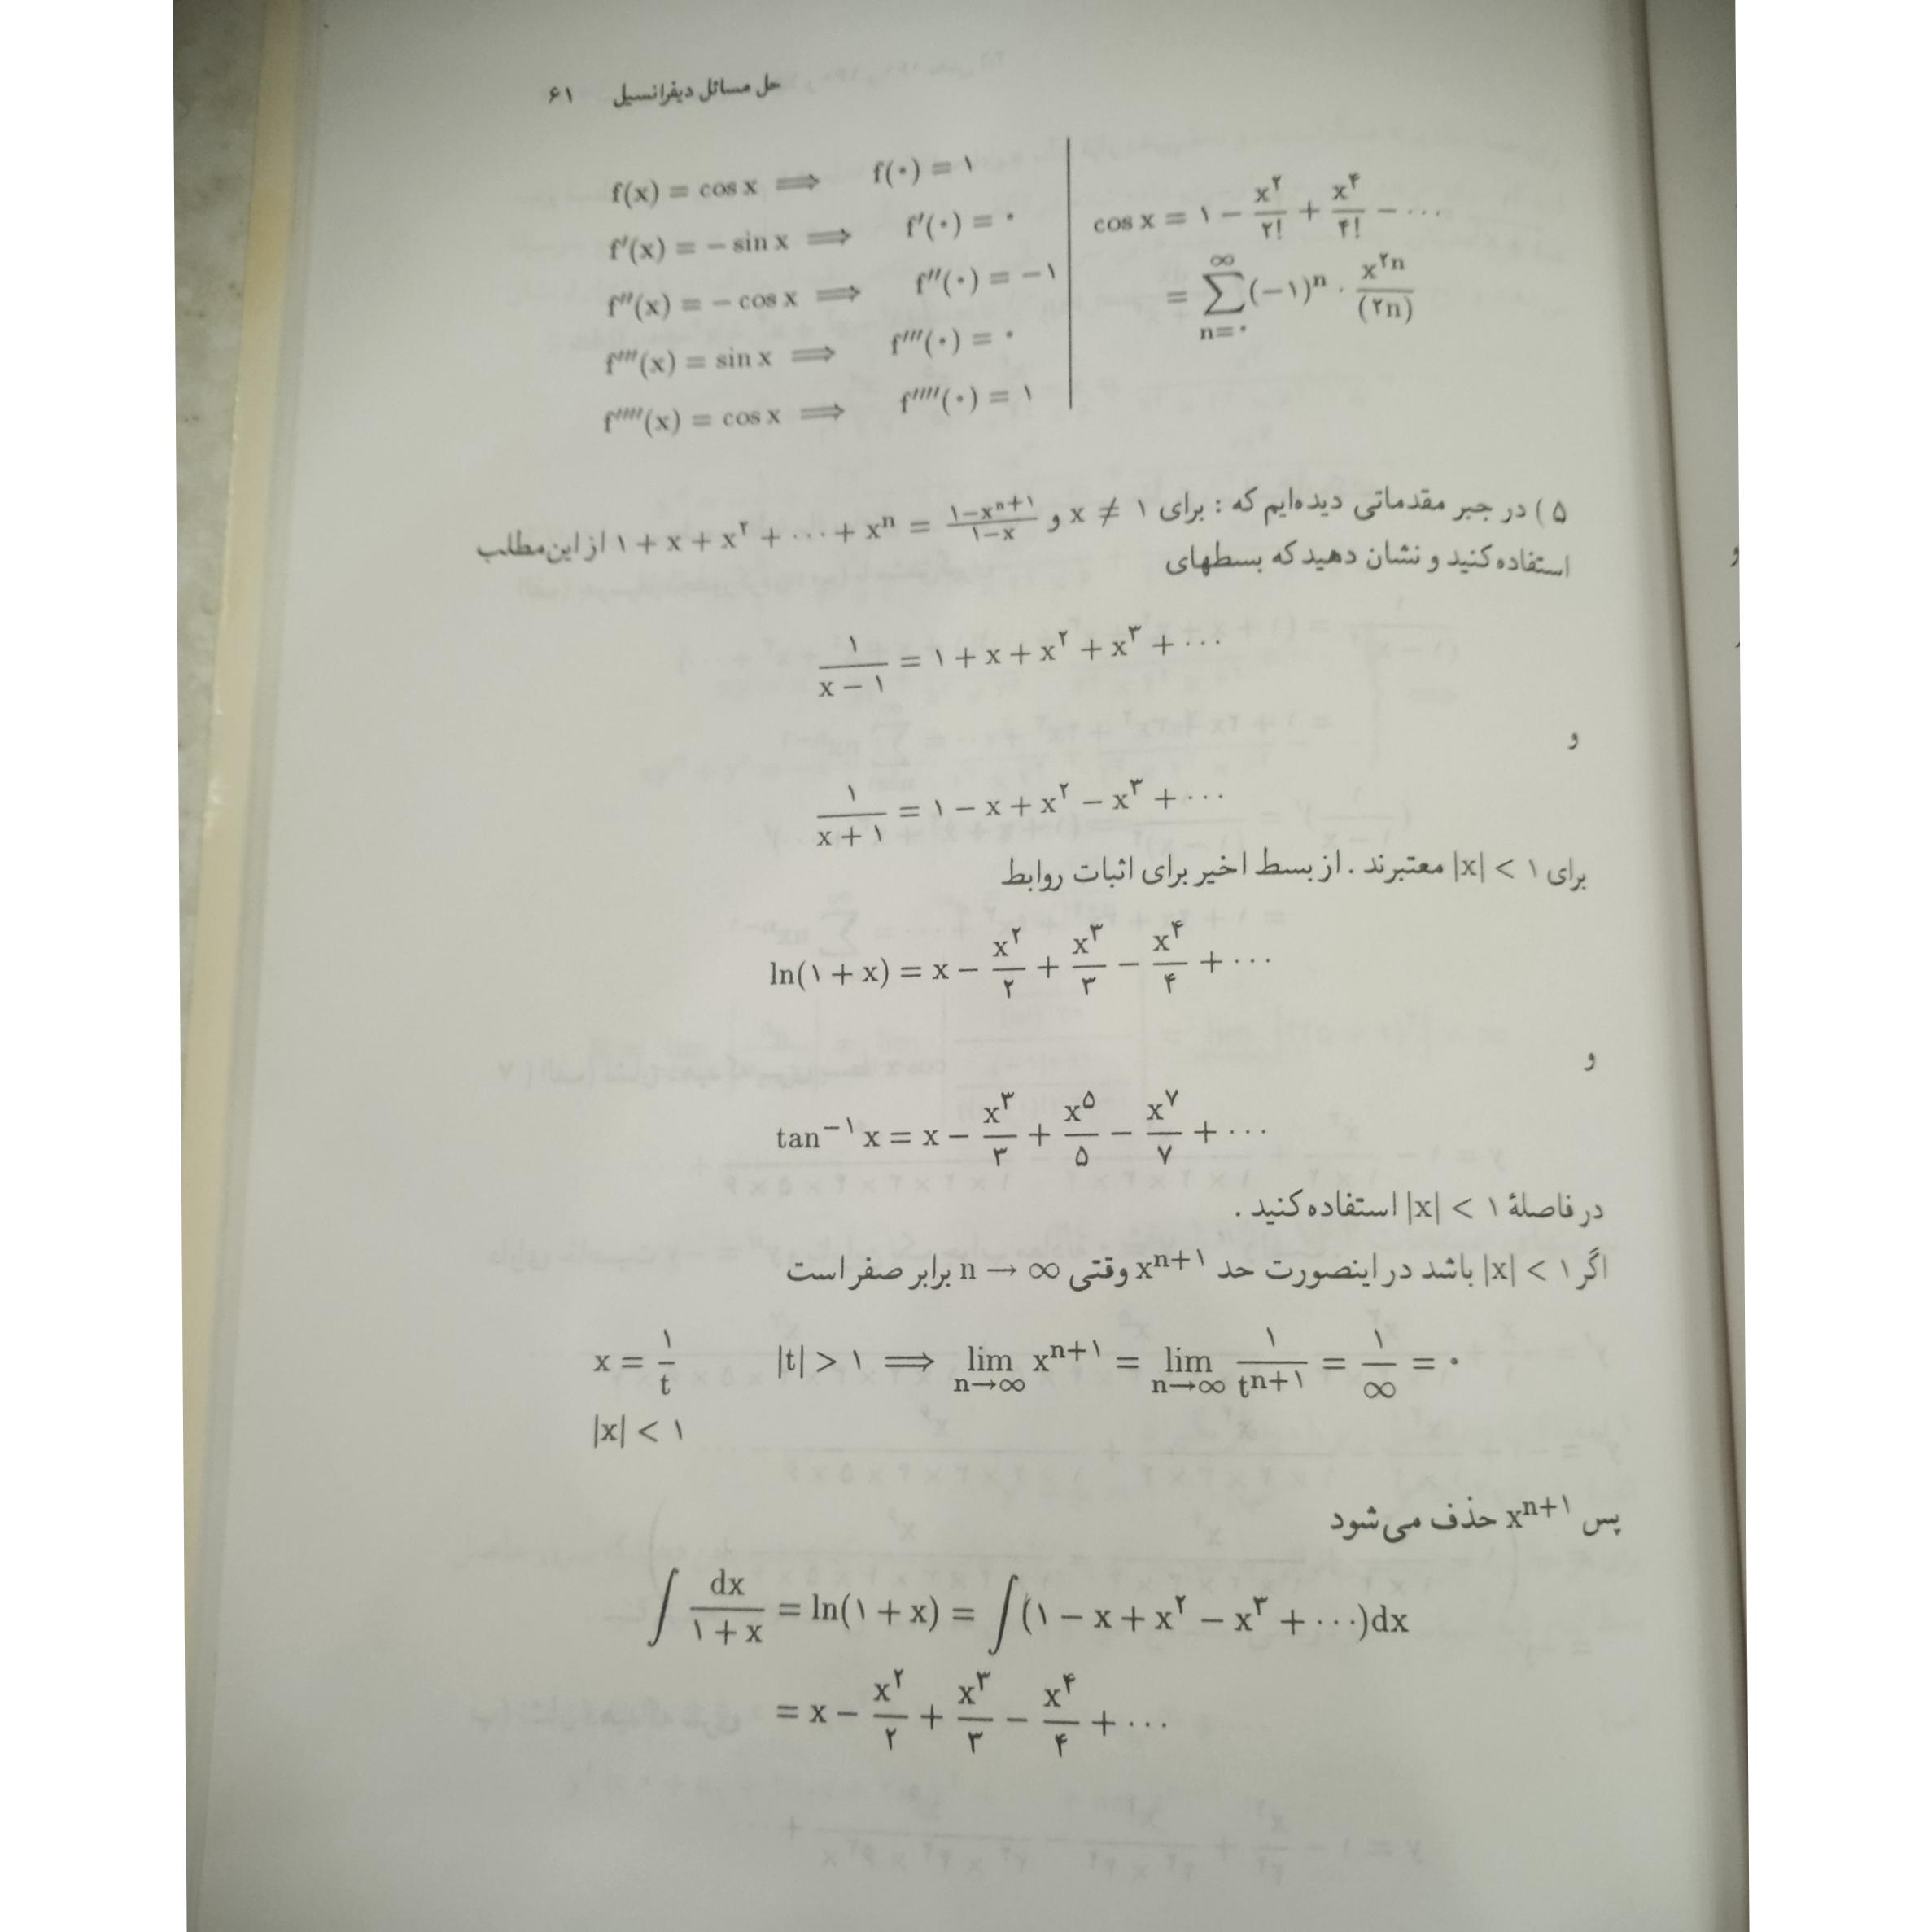 حل مسائل دیفرانسیل ۶۱
f(x) = cos x ⟹ f(۰) = ۱
f′(x) = − sin x ⟹ f′(۰) = ۰
f″(x) = − cos x ⟹ f″(۰) = −۱
f‴(x) = sin x ⟹ f‴(۰) = ۰
f⁗(x) = cos x ⟹ f⁗(۰) = ۱
cos x = ۱ − x^۲/۲! + x^۴/۴! − ⋯
= ∑_{n=۰}^{∞} (−۱)^n · x^{۲n}/(۲n)
۵ ) در جبر مقدماتی دیده‌ایم که : برای x ≠ ۱ و ۱ + x + x^۲ + ⋯ + x^n = (۱−x^{n+۱})/(۱−x) از این مطلب
استفاده کنید و نشان دهید که بسطهای
۱/(x − ۱) = ۱ + x + x^۲ + x^۳ + ⋯
و
۱/(x + ۱) = ۱ − x + x^۲ − x^۳ + ⋯
برای |x| < ۱ معتبرند . از بسط اخیر برای اثبات روابط
ln(۱ + x) = x − x^۲/۲ + x^۳/۳ − x^۴/۴ + ⋯
و
tan^{−۱} x = x − x^۳/۳ + x^۵/۵ − x^۷/۷ + ⋯
در فاصلهٔ |x| < ۱ استفاده کنید .
اگر |x| < ۱ باشد در اینصورت حد x^{n+۱} وقتی n → ∞ برابر صفر است
x = ۱/t |t| > ۱ ⟹ lim_{n→∞} x^{n+۱} = lim_{n→∞} ۱/t^{n+۱} = ۱/∞ = ۰
|x| < ۱
پس x^{n+۱} حذف می‌شود
∫ dx/(۱ + x) = ln(۱ + x) = ∫(۱ − x + x^۲ − x^۳ + ⋯)dx
= x − x^۲/۲ + x^۳/۳ − x^۴/۴ + ⋯